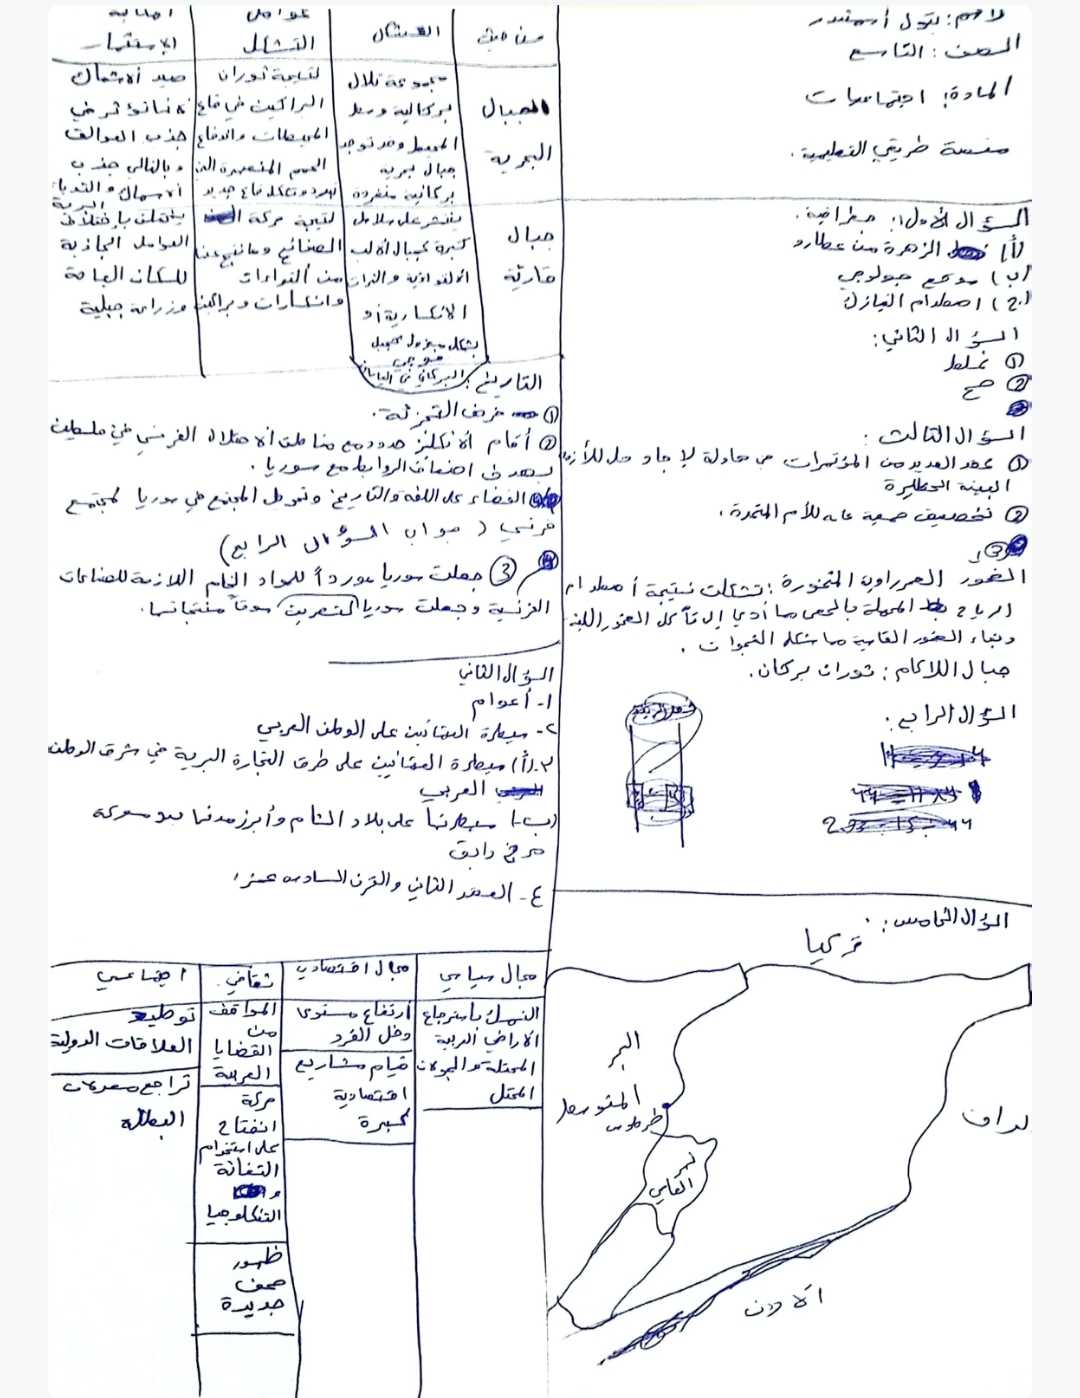 الاسم: بتول أسمندر
الصف: التاسع
المادة: اجتماعيات
منصة طريقي التعليمية.
السؤال الأول: جغرافية.
أ) الزهرة من عطارد
ب) موقع جيولوجي
ج) اصطدام النيازك
السؤال الثاني:
① غلط
② صح
السؤال الثالث:
① عقد العديد من المؤتمرات في محاولة لإيجاد حل للأزمة
البيئة الخطيرة
② تخصيص جمعية عامة للأمم المتحدة.
③
الصخور الصحراوية المتخورة: تشكلت نتيجة اصطدام
الرياح المحملة بالحصى مما أدى إلى تآكل الصخور اللينة
وبقاء الصخور القاسية مما شكل الفجوات.
جبال اللاكام: ثوران بركان.
السؤال الرابع:
السؤال الخامس:
تركيا
البحر
المتوسط
طرطوس
القاسي
الاردن
من حيث
التشكل
عوامل
التشكل
امكانية
الاستثمار
الجبال
البحرية
مجموعة تلال
بركانية وسط
المحيط وقد توجد
جبال بحرية
بركانية منفردة
نتيجة ثوران
البراكين في قاع
المحيطات واندفاع
الحمم المنصهرة التي
تبرد وتشكل قاع جديد
صيد الأسماك
جذب العوالق
وبالتالي جذب
الاسماك
جبال
قارية
تنتشر على سلاسل
كبيرة كجبال الألب
الالتوائية والذرات
الانكسارية أو
بشكل منعزل كجبل
فوجي
البركاني في اليابان
نتيجة حركة
الصفائح وما نتج عنها
من التواءات
وانكسارات وبراكين
يختلف باختلاف
العوامل الجاذبة
للسكان العامة
وزراعة جبلية
التاريخ:
① خوف التجزئة.
② أقام الانكليز حدود مع مناطق الاحتلال الفرنسي في فلسطين
بهدف اضعاف الروابط مع سوريا.
القضاء على اللغة والتاريخ وتحويل المجتمع في سوريا لمجتمع
فرنسي (جواب السؤال الرابع)
③ جعلت سوريا مورداً للمواد الخام اللازمة للصناعات
الفرنسية وجعلت سوريا لتصريف سوقاً منتجاتها.
السؤال الثاني
١- أعوام
٢- سيطرة العثمانيين على الوطن العربي
٣- أ) سيطرة العثمانيين على طرق التجارة البرية في شرق الوطن
العربي
ب- سيطرتها على بلاد الشام وأبرز مدنها بعد معركة
مرج دابق
٤- العقد الثاني والقرن السادس عشر
مجال سياسي
مجال اقتصادي
ثقافي
اجتماعي
التمسك باسترجاع
الأراضي العربية
المحتلة والجولان
المحتل
ارتفاع مستوى
دخل الفرد
قيام مشاريع
اقتصادية
كبيرة
المواقف
من
القضايا
العربية
حركة
انفتاح
على استخدام
التقانة
و
التكنلوجيا
ظهور
صحف
جديدة
توطيد
العلاقات الدولية
تراجع معدلات
البطالة